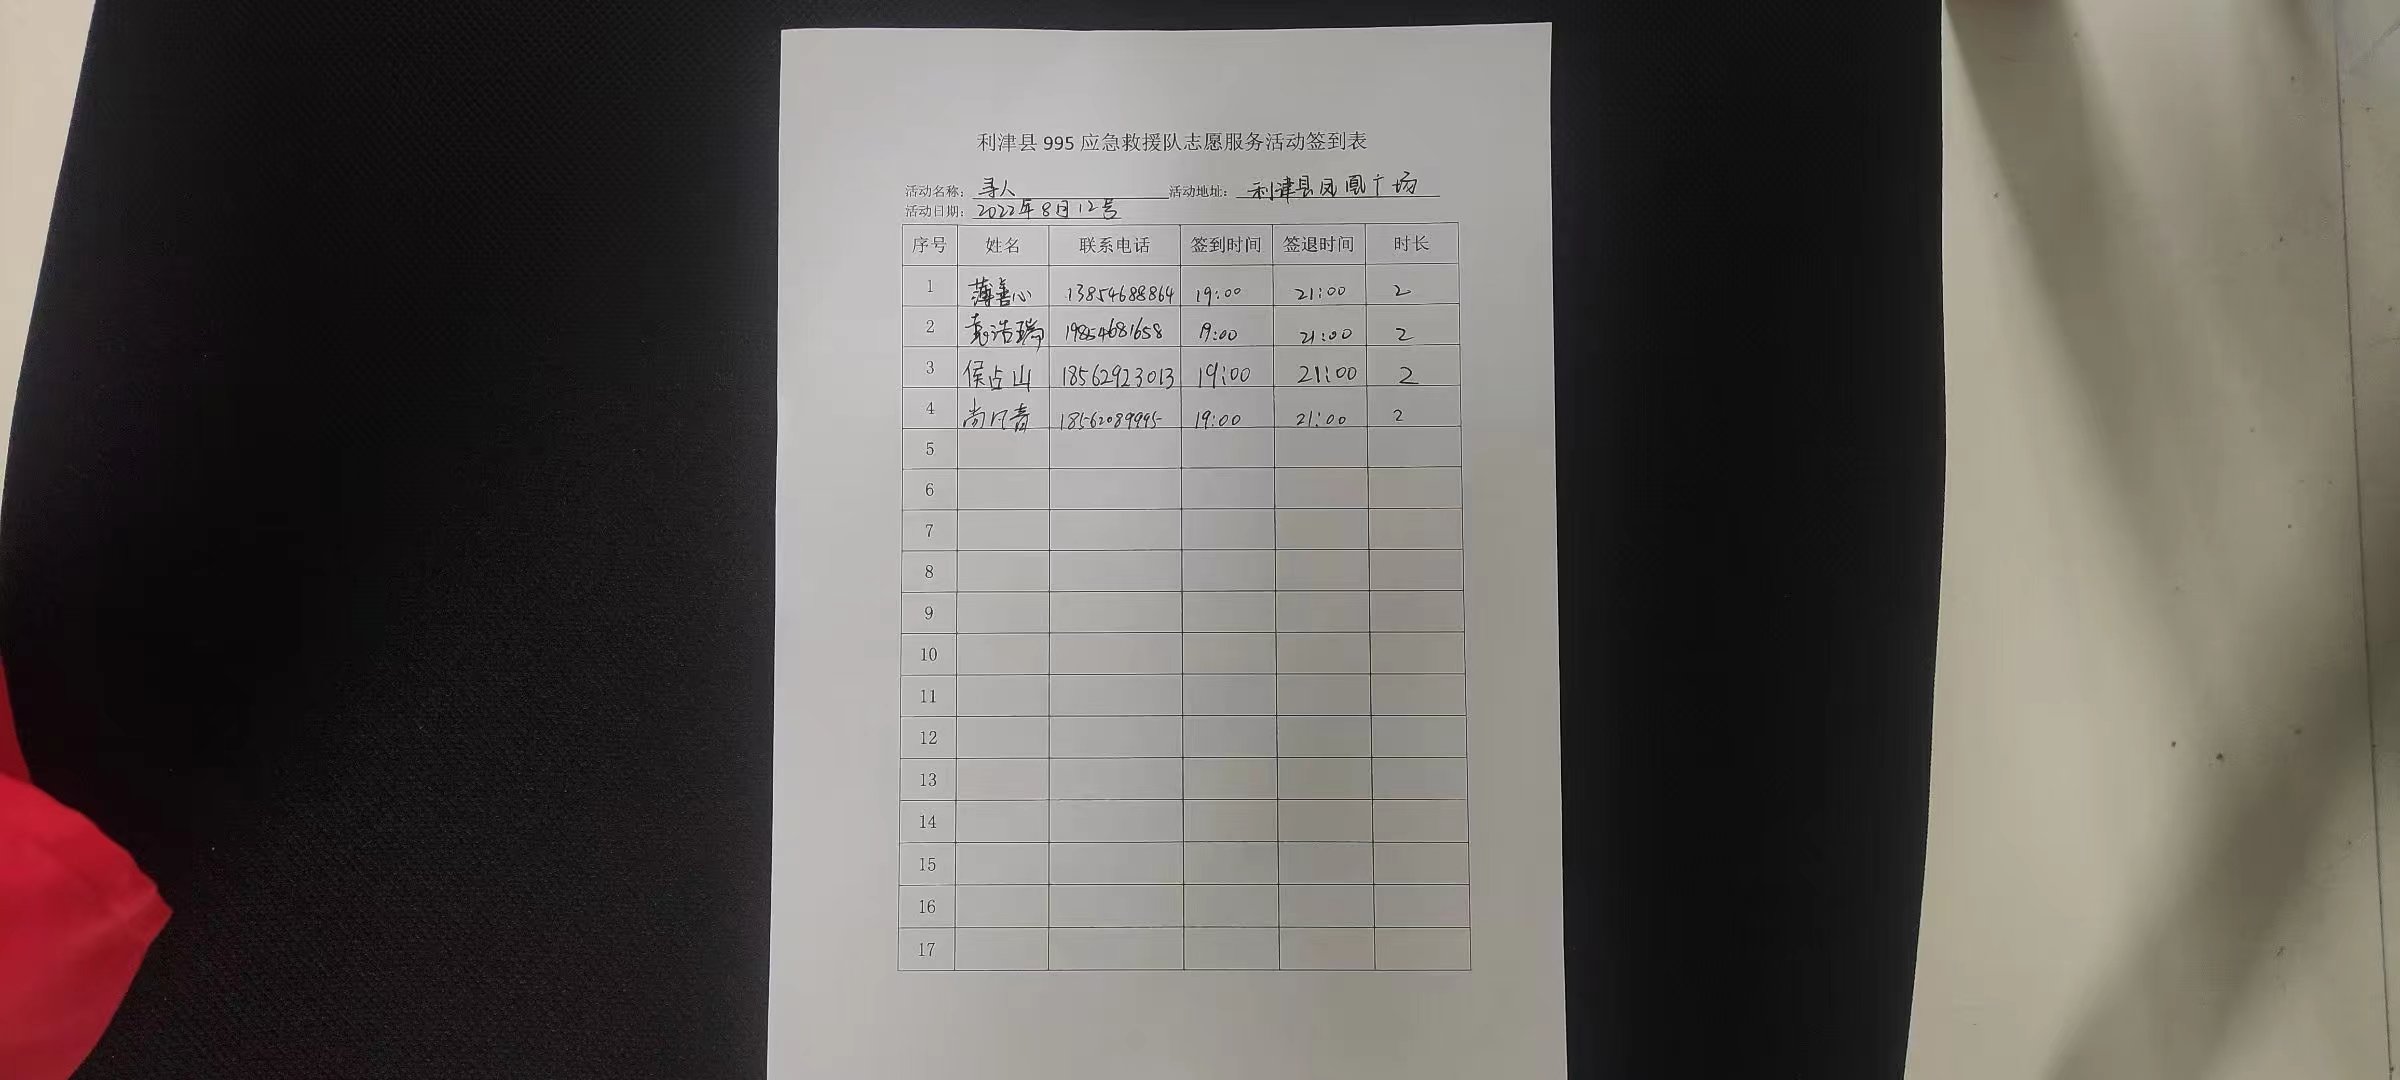 利津县 995 应急救援队志愿服务活动签到表
活动名称：寻人 活动地址：利津县凤凰广场
活动日期：2022年8月12号
序号 姓名 联系电话 签到时间 签退时间 时长
1 薄善心 13854688864 19:00 21:00 2
2 袁浩瑞 19854681658 19:00 21:00 2
3 侯占山 18562923013 19:00 21:00 2
4 尚风青 18562089995 19:00 21:00 2
5
6
7
8
9
10
11
12
13
14
15
16
17